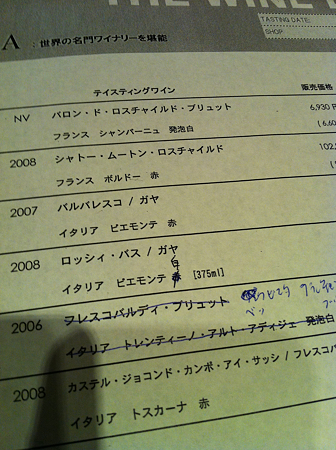 THE WINE
TASTING DATE:
SHOP
A : 世界の名門ワイナリーを堪能
テイスティングワイン 販売価格
NV バロン・ド・ロスチャイルド・ブリュット 6,930
フランス シャンパーニュ 発泡白 (6,60
2008 シャトー・ムートン・ロスチャイルド 102,
フランス ボルドー 赤
2007 バルバレスコ / ガヤ
イタリア ピエモンテ 赤
2008 ロッシィ・バス / ガヤ
白
イタリア ピエモンテ 赤 [375ml]
2006 フレスコバルディ・ブリュット
イタリア トレンティーノ・アルト・アディジェ 発泡白
2008 カステル・ジョコンド・カンポ・アイ・サッシ / フレスコバ
イタリア トスカーナ 赤